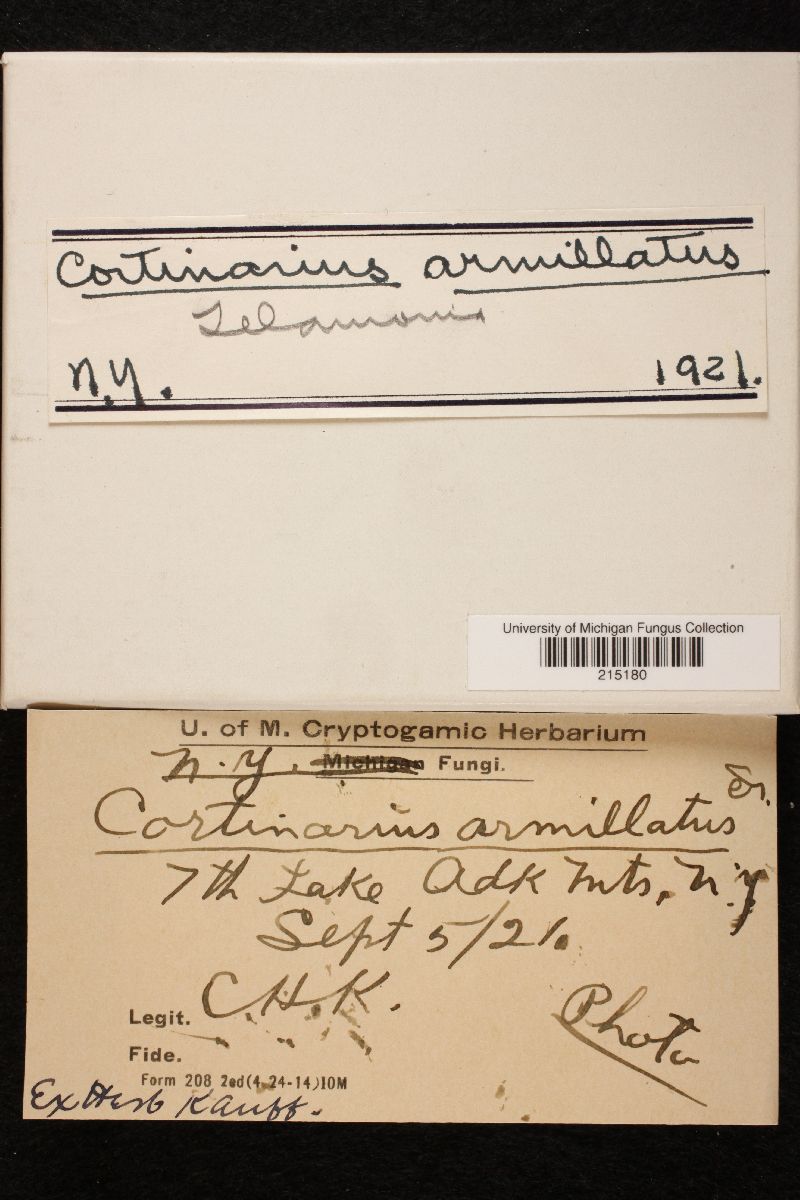 Cortinarius armillatus
Telamonia
N.Y. 1921.
University of Michigan Fungus Collection
215180
U. of M. Cryptogamic Herbarium
N.Y. Michigan Fungi.
Cortinarius armillatus Fr.
7th Lake Adk Mts, N.Y
Sept 5/21.
Legit. C.H.K.
Photo
Fide. " " "
Form 208 2ed(4-24-14)10M
Ex Herb Kauff.